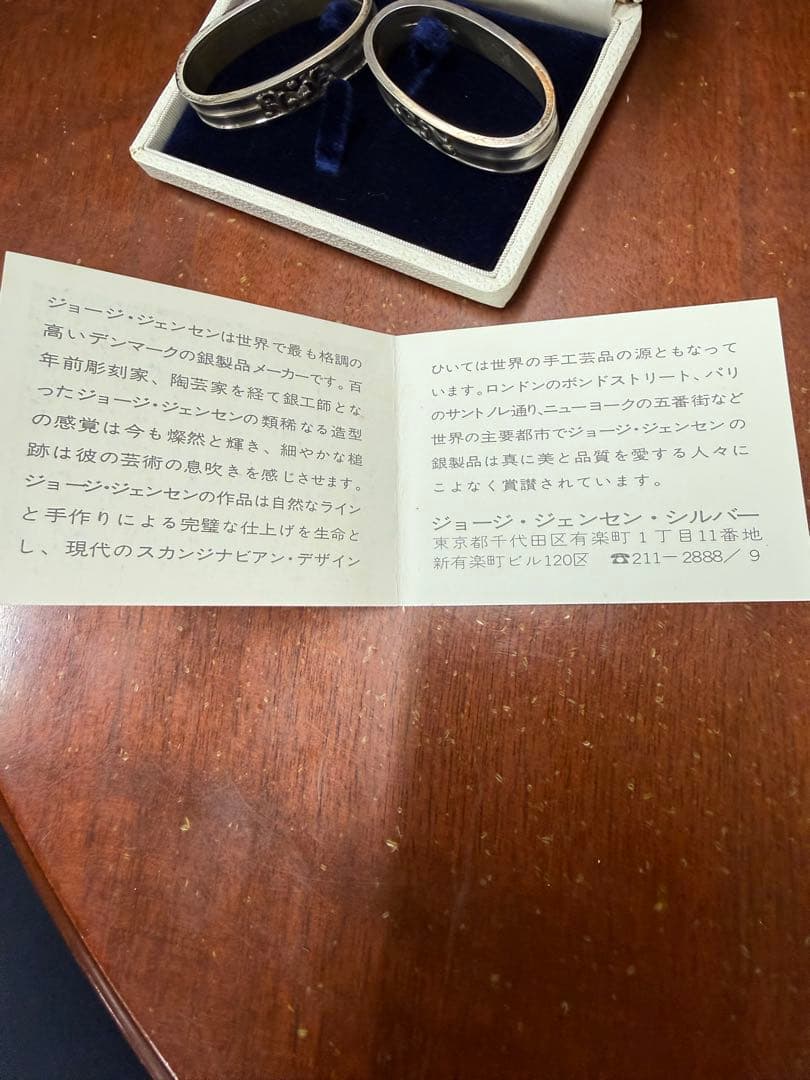 ジョージ・ジェンセンは世界で最も格調の
高いデンマークの銀製品メーカーです。百
年前彫刻家、陶芸家を経て銀工師とな
ったジョージ・ジェンセンの類稀なる造型
の感覚は今も燦然と輝き、細やかな槌
跡は彼の芸術の息吹きを感じさせます。
ジョージ・ジェンセンの作品は自然なライン
と手作りによる完璧な仕上げを生命と
し、現代のスカンジナビアン・デザイン
ひいては世界の手工芸品の源ともなって
います。ロンドンのボンドストリート、パリ
のサントノレ通り、ニューヨークの五番街など
世界の主要都市でジョージ・ジェンセンの
銀製品は真に美と品質を愛する人々に
こよなく賞讃されています。
ジョージ・ジェンセン・シルバー
東京都千代田区有楽町1丁目11番地
新有楽町ビル120区 ☎211－2888／9